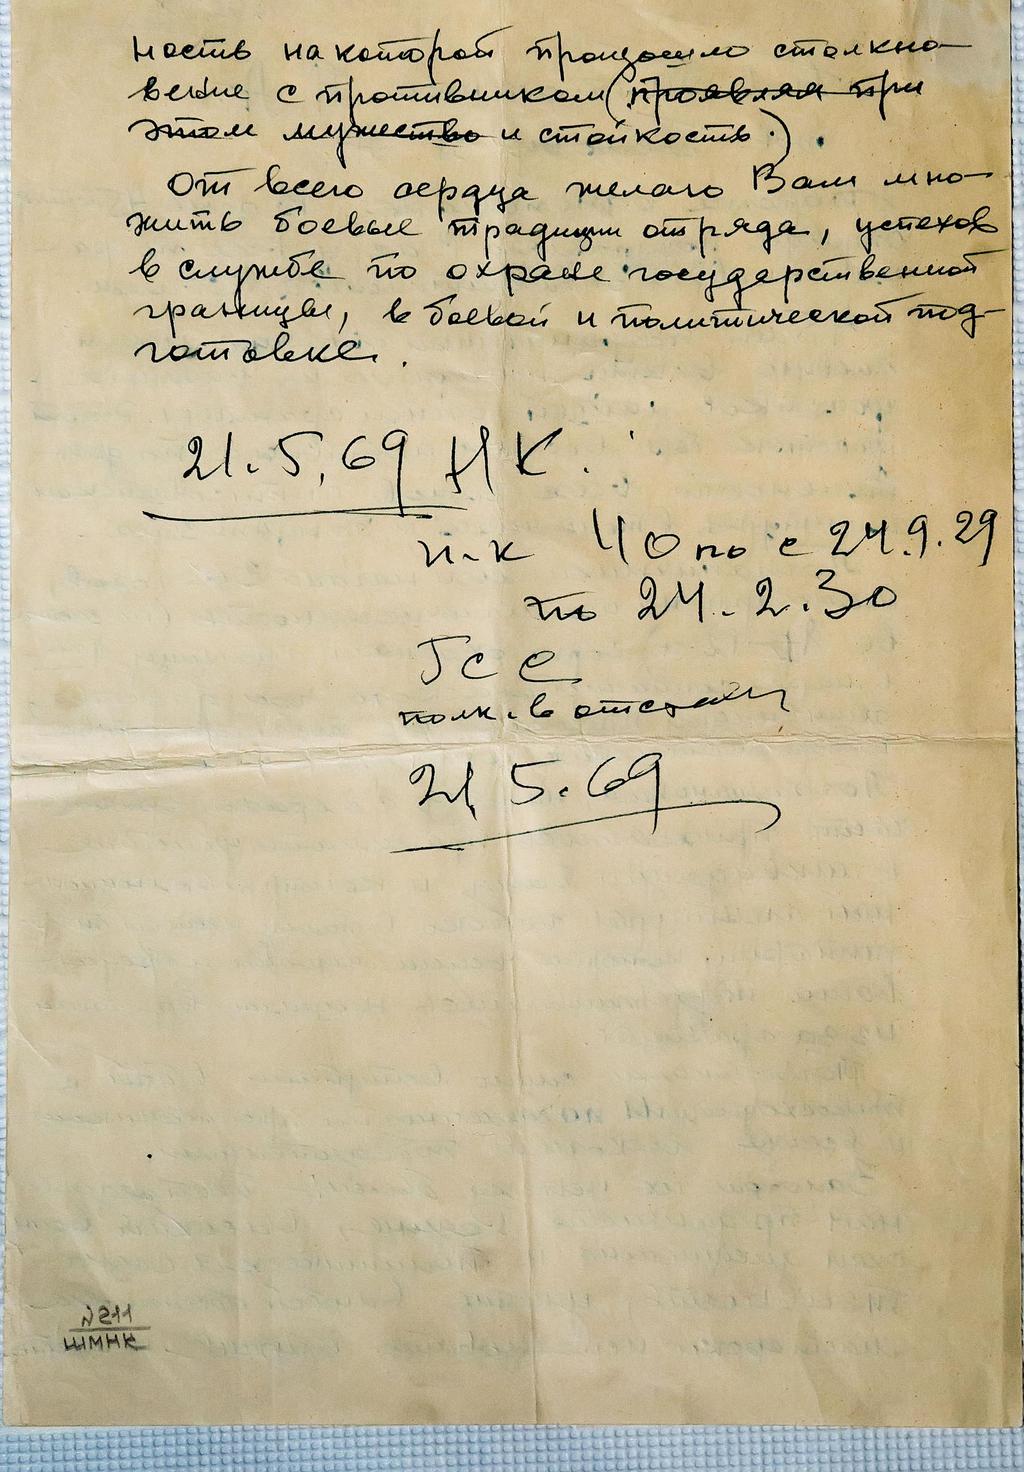 ность на которой произошло столкно-
вение с противником (проявляя при
этом мужество и стойкость.).
От всего сердца желаю Вам мно-
жить боевые традиции отряда, успехов
в службе по охране государственной
границы, в боевой и политической под-
готовке.
21.5.69 НК.
н-к ЧО по с 24.9.29
по 24.2.30
ГСС
полк. в отставки
21 5.69
№211
ШМНК